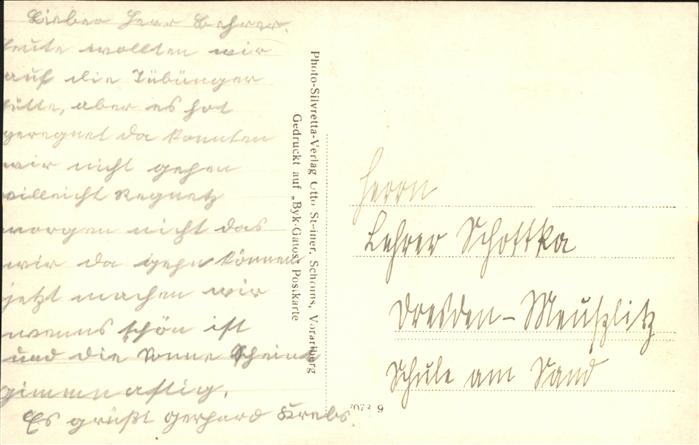 Lieber Herr Lehrer.
heute wollten wir
auf die Tübünger
hütte, aber es hat
geregnet da konnten
wir nicht gehen
villeicht Regnetz
morgen nicht das
wir da gehn können
jetzt machen wir
wenns schön ist
und die Sonne Scheint
gimmnastig.
Es grüßt Gerhard Krebs.
Photo-Silvretta-Verlag Otto Steiner, Schruns, Vorarlberg
Gedruckt auf „Byk-Gatos" Postkarte
Herrn
Lehrer Schottka
Dresden-Meußlitz
Schule am Sand